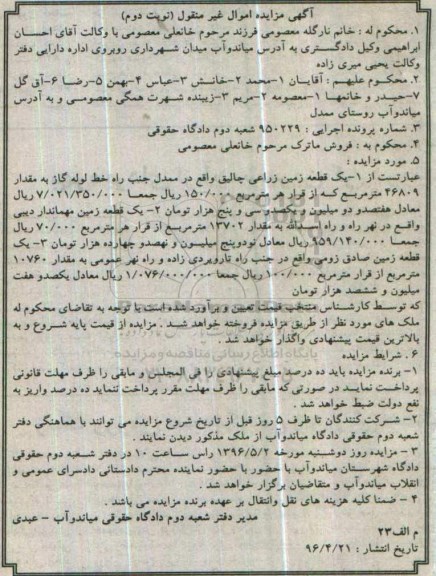 آگهی مزایده اموال غیر منقول (نوبت دوم)
۱. محکوم له : خانم نارگله معصومی فرزند مرحوم خانعلی معصومی با وکالت آقای احسان
ابراهیمی وکیل دادگستری به آدرس میاندوآب میدان شهرداری روبروی اداره دارایی دفتر
وکالت یحیی میری زاده
۲. محکوم علیهم : آقایان ۱-محمد ۲-خانش ۳-عباس ۴-بهمن ۵-رضا ۶-آق گل
۷-حیدر و خانمها ۱-معصومه ۲-مریم ۳-زیبنده شهرت همگی معصومی و به آدرس
میاندوآب روستای ممدل
۳. شماره پرونده اجرایی : ۹۵۰۲۲۹ شعبه دوم دادگاه حقوقی
۴. محکوم به : فروش ماترک مرحوم خانعلی معصومی
۵. مورد مزایده :
عبارتست از ۱-یک قطعه زمین زراعی چالیق واقع در ممدل جنب راه خط لوله گاز به مقدار
۴۶۸۰۹ مترمربع که از قرار هر مترمربع ۱۵۰/۰۰۰ ریال جمعا ۷/۰۲۱/۳۵۰/۰۰۰ ریال
معادل هفتصدو دو میلیون و یکصدو سی و پنج هزار تومان ۲- یک قطعه زمین مهماندار دیبی
واقع در نهر راه و راه اسدالله به مقدار ۱۳۷۰۲ مترمربع از قرار هر مترمربع ۷۰/۰۰۰ ریال
جمعا ۹۵۹/۱۴۰/۰۰۰ ریال معادل نودوپنج میلیون و نهصدو چهارده هزار تومان ۳- یک
قطعه زمین صادق زومی واقع در جنب راه تازویردی زاده و راه نهر عمومی به مقدار ۱۰۷۶۰
مترمربع از قرار مترمربع ۱۰۰/۰۰۰ ریال جمعا ۱/۰۷۶/۰۰۰/۰۰۰ ریال معادل یکصدو هفت
میلیون و ششصد هزار تومان
که توسط کارشناس منتخب قیمت تعیین و برآورد شده است با توجه به تقاضای محکوم له
ملک های مورد نظر از طریق مزایده فروخته خواهد شد . مزایده از قیمت پایه شروع و به
بالاترین قیمت پیشنهادی واگذار خواهد شد.
۶ . شرایط مزایده
۱- برنده مزایده باید ده درصد مبلغ پیشنهادی را فی المجلس و مابقی را ظرف مهلت قانونی
پرداخت نماید در صورتی که مابقی را ظرف مهلت مقرر پرداخت ننماید ده درصد واریز به
نفع دولت ضبط خواهد شد .
۲- شرکت کنندگان تا ظرف ۵ روز قبل از تاریخ شروع مزایده می توانند با هماهنگی دفتر
شعبه دوم حقوقی دادگاه میاندوآب از ملک مذکور دیدن نمایند .
۳ - مزایده روز دوشنبه مورخه ۱۳۹۶/۵/۲ راس ساعت ۱۰ در دفتر شعبه دوم حقوقی
دادگاه شهرستان میاندوآب با حضور با حضور نماینده محترم دادستانی دادسرای عمومی و
انقلاب میاندوآب و متقاضیان برگزار خواهد شد .
۴ - ضمنا کلیه هزینه های نقل وانتقال بر عهده برنده مزایده می باشد .
مدیر دفتر شعبه دوم دادگاه حقوقی میاندوآب - عبدی
م الف۲۳
تاریخ انتشار : ۹۶/۴/۲۱